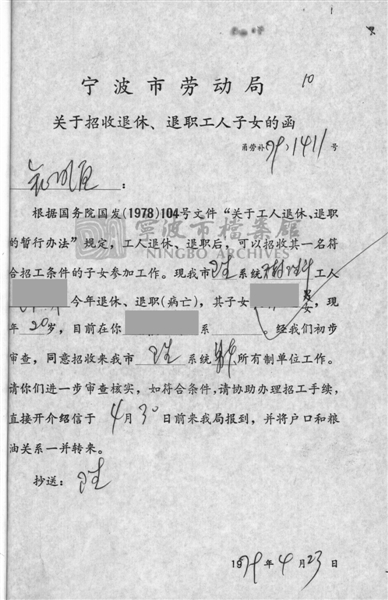 10
宁波市劳动局
关于招收退休、退职工人子女的函
甬劳补79.1411号
：
根据国务院国发(1978)104号文件“关于工人退休、退职
的暂行办法”规定，工人退休、退职后，可以招收其一名符
合招工条件的子女参加工作。现我市 系统 工人
今年退休、退职(病亡)，其子女 女，现
年20岁，目前在你 系 。经我们初步
审查，同意招收来我市 系统 所有制单位工作。
请你们进一步审查核实，如符合条件，请协助办理招工手续，
直接开介绍信于4月30日前来我局报到，并将户口和粮
油关系一并转来。
抄送：
1979年4月23日
宁波市档案馆
NINGBO ARCHIVES